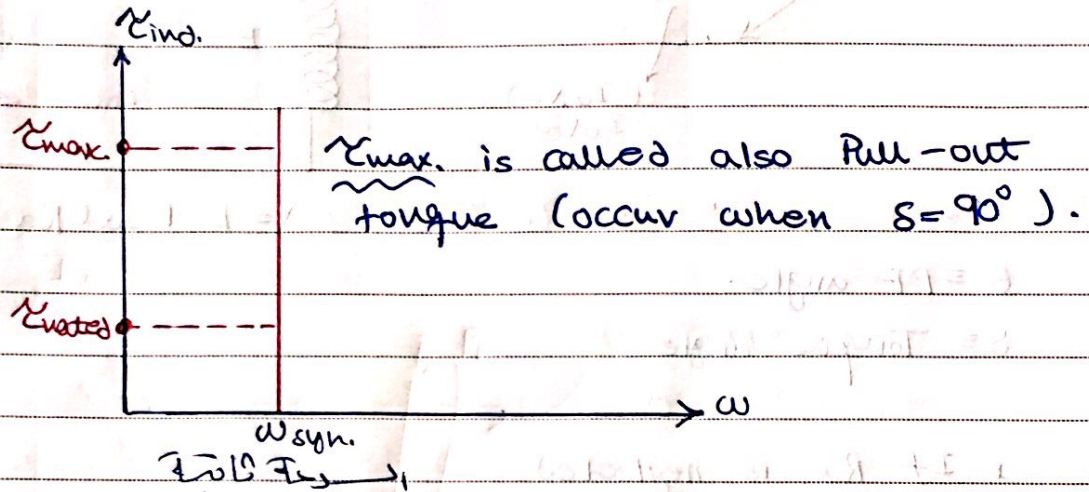 τind.
τmax.
τmax. is called also Pull-out
torque (occur when δ=90°).
τrated
ω
ωsyn.
السرعة ثابتة